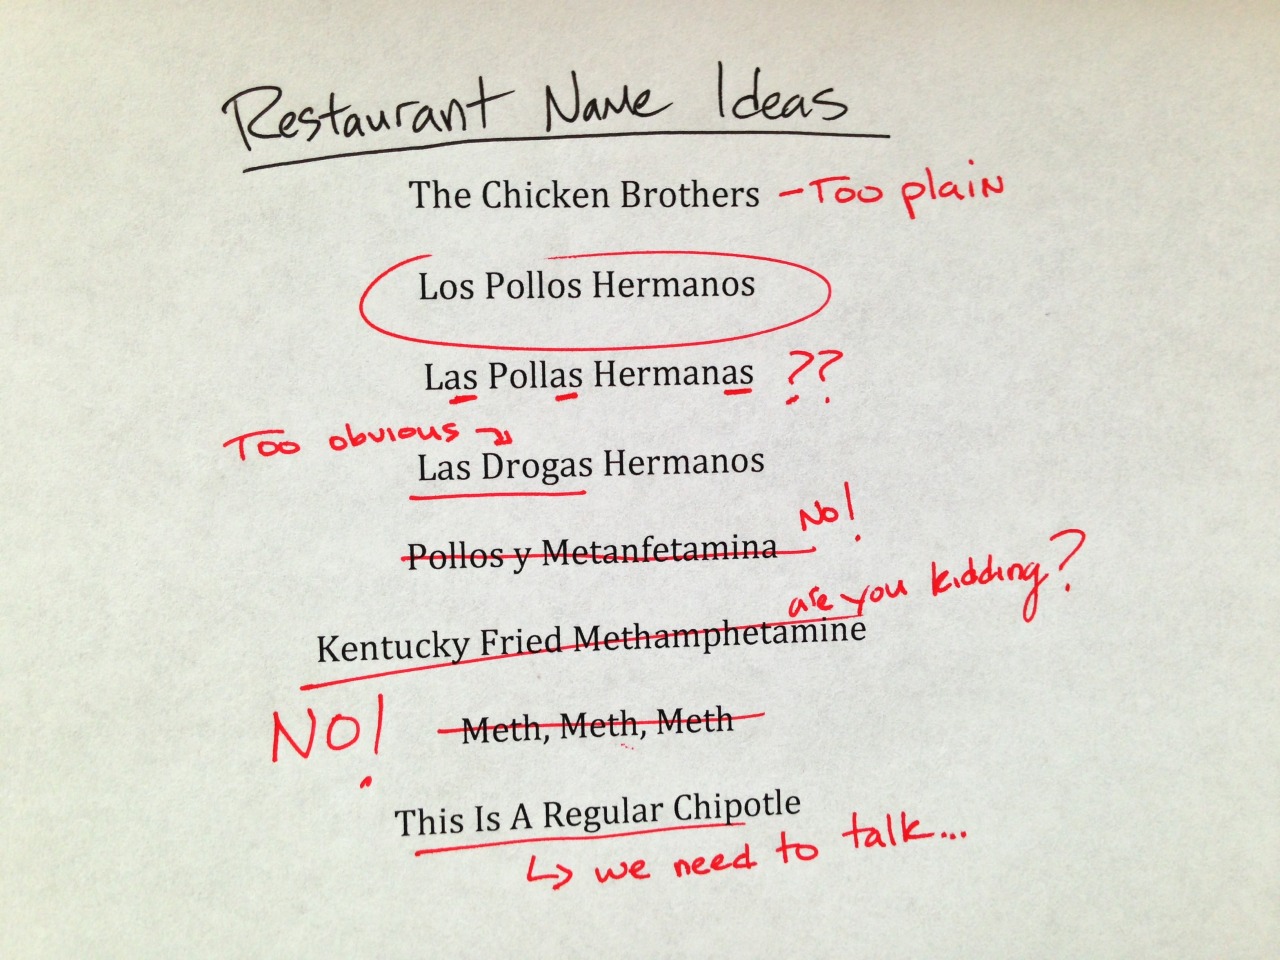 Restaurant Name Ideas
The Chicken Brothers - Too plain
Los Pollos Hermanos
Las Pollas Hermanas ??
Too obvious
Las Drogas Hermanos
No!
Pollos y Metanfetamina
are you kidding?
Kentucky Fried Methamphetamine
NO! Meth, Meth, Meth
This Is A Regular Chipotle
↳ we need to talk...